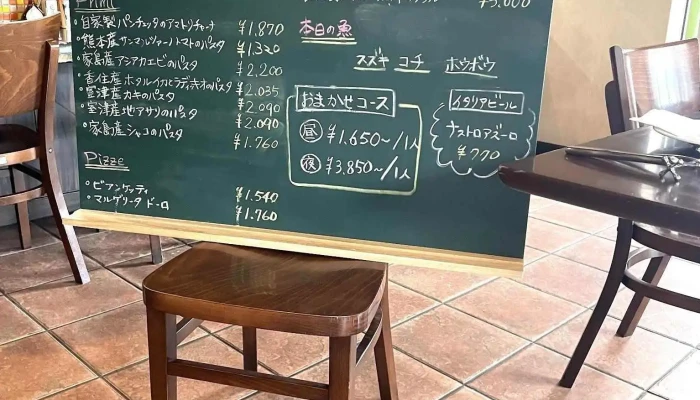 Primi
・自家製パンチェッタのアマトリチャーナ ¥1.870
・熊本産サンマルツァーノトマトのパスタ ¥1.320
・家島産アシアカエビのパスタ ¥2.200
・香住産ホタルイカとラディッキオのパスタ ¥2.035
・室津産カキのパスタ ¥2.090
・室津産地アサリのパスタ ¥2.090
・家島産シャコのパスタ ¥1.760
Pizze
・ビアンケッティ ¥1.540
・マルゲリータ ドーロ ¥1.760
¥5.000
本日の魚
スズキ コチ ホウボウ
おまかせコース
昼 ¥1.650〜/1人
夜 ¥3.850〜/1人
イタリアビール
ナストロアズーロ
¥770